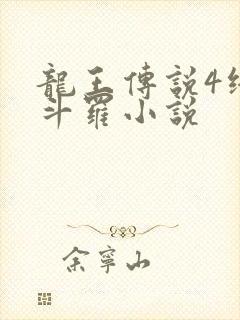 龍王傳說4終
斗羅小說
余寧山